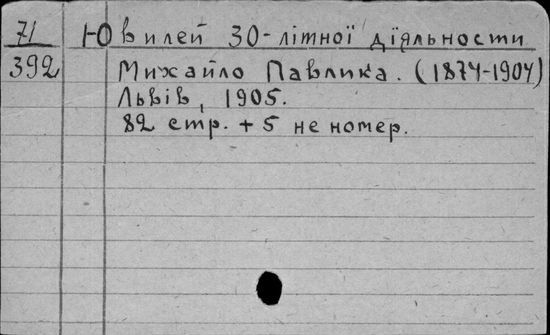 71 Ювилей 30-літної діяльности
392 Михайло Павлика. (1874-1904)
Львів, 1905.
82 стр. + 5 не номер.